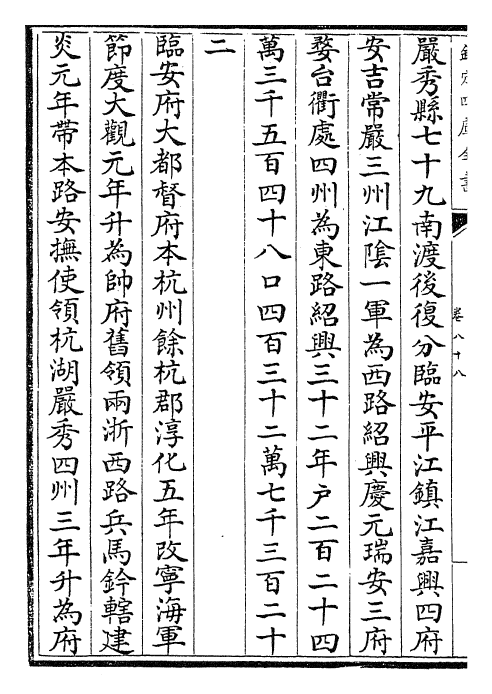 欽定四庫全書
卷八十八
嚴秀縣七十九南渡後復分臨安平江鎮江嘉興四府
安吉常嚴三州江陰一軍為西路紹興慶元瑞安三府
婺台衢處四州為東路紹興三十二年户二百二十四
萬三千五百四十八口四百三十二萬七千三百二十
二
臨安府大都督府本杭州餘杭郡淳化五年改寧海軍
節度大觀元年升為帥府舊領兩浙西路兵馬鈐轄建
炎元年帶本路安撫使領杭湖嚴秀四州三年升為府